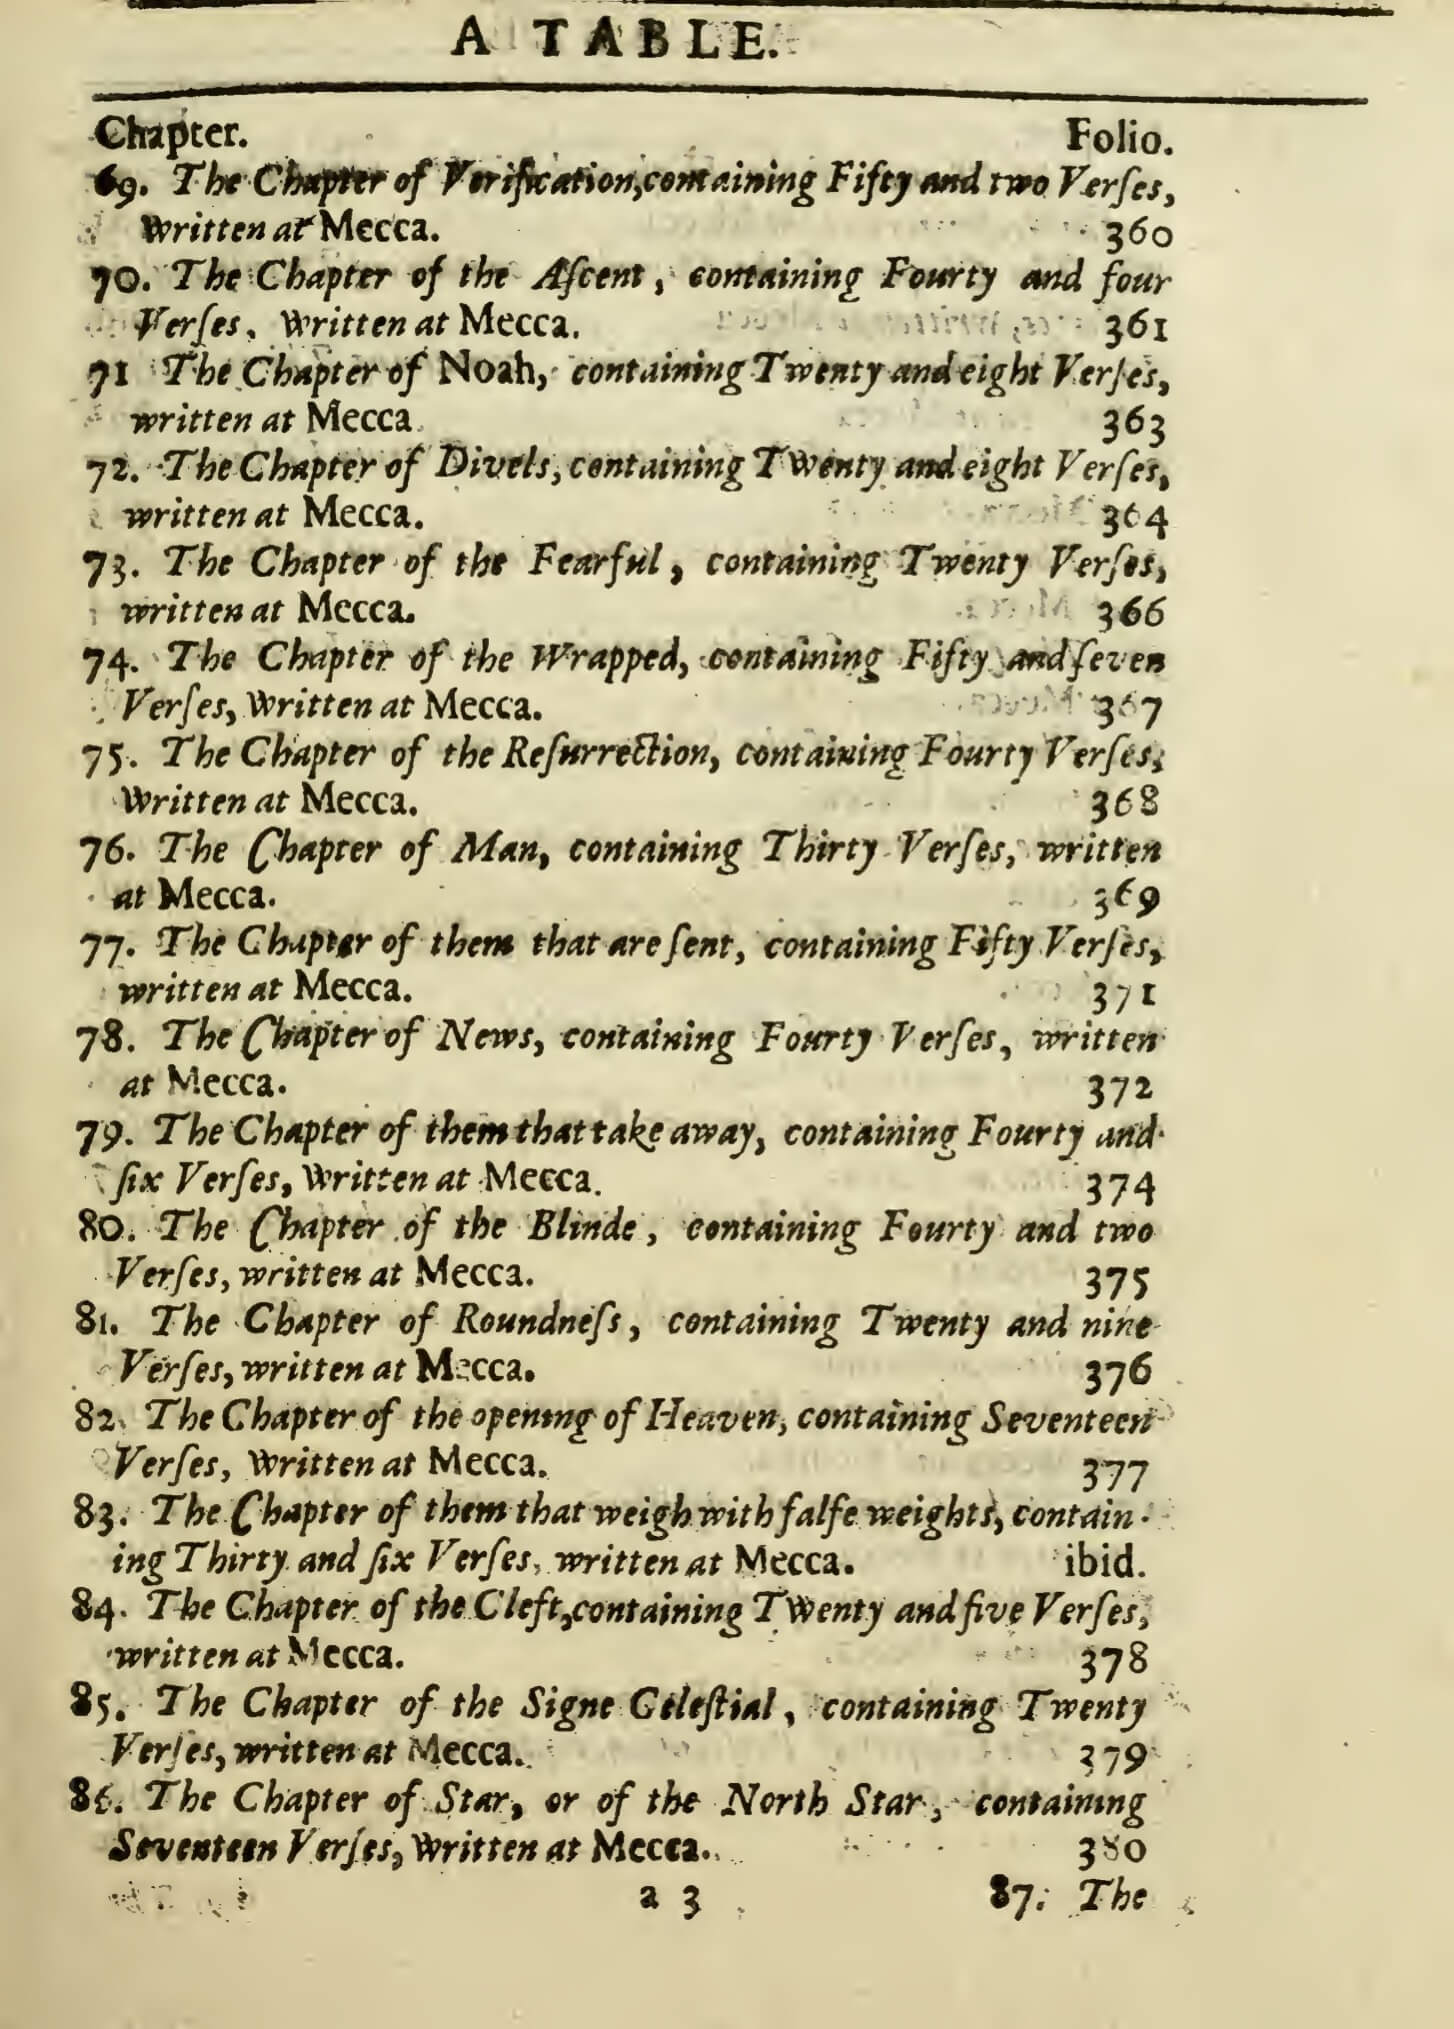 A TABLE.
Chapter. Folio.
69. The Chapter of Verification, containing Fifty and two Verſes,
Written at Mecca. 360
70. The Chapter of the Aſcent, containing Fourty and four
Verſes, Written at Mecca. 361
71 The Chapter of Noah, containing Twenty and eight Verſes,
written at Mecca. 363
72. The Chapter of Divels, containing Twenty and eight Verſes,
written at Mecca. 364
73. The Chapter of the Fearful, containing Twenty Verſes,
written at Mecca. 366
74. The Chapter of the Wrapped, containing Fifty and ſeven
Verſes, Written at Mecca. 367
75. The Chapter of the Reſurrection, containing Fourty Verſes,
Written at Mecca. 368
76. The Chapter of Man, containing Thirty Verſes, written
at Mecca. 369
77. The Chapter of them that are ſent, containing Fifty Verſes,
written at Mecca. 371
78. The Chapter of News, containing Fourty Verſes, written
at Mecca. 372
79. The Chapter of them that take away, containing Fourty and
ſix Verſes, Written at Mecca. 374
80. The Chapter of the Blinde, containing Fourty and two
Verſes, written at Mecca. 375
81. The Chapter of Roundneſs, containing Twenty and nine
Verſes, written at Mecca. 376
82. The Chapter of the opening of Heaven, containing Seventeen
Verſes, Written at Mecca. 377
83. The Chapter of them that weigh with falſe weights, contain-
ing Thirty and ſix Verſes, written at Mecca. ibid.
84. The Chapter of the Cleft, containing Twenty and five Verſes,
written at Mecca. 378
85. The Chapter of the Signe Celeſtial, containing Twenty
Verſes, written at Mecca. 379
86. The Chapter of Star, or of the North Star, containing
Seventeen Verſes, Written at Mecca. 380
a 3 87. The